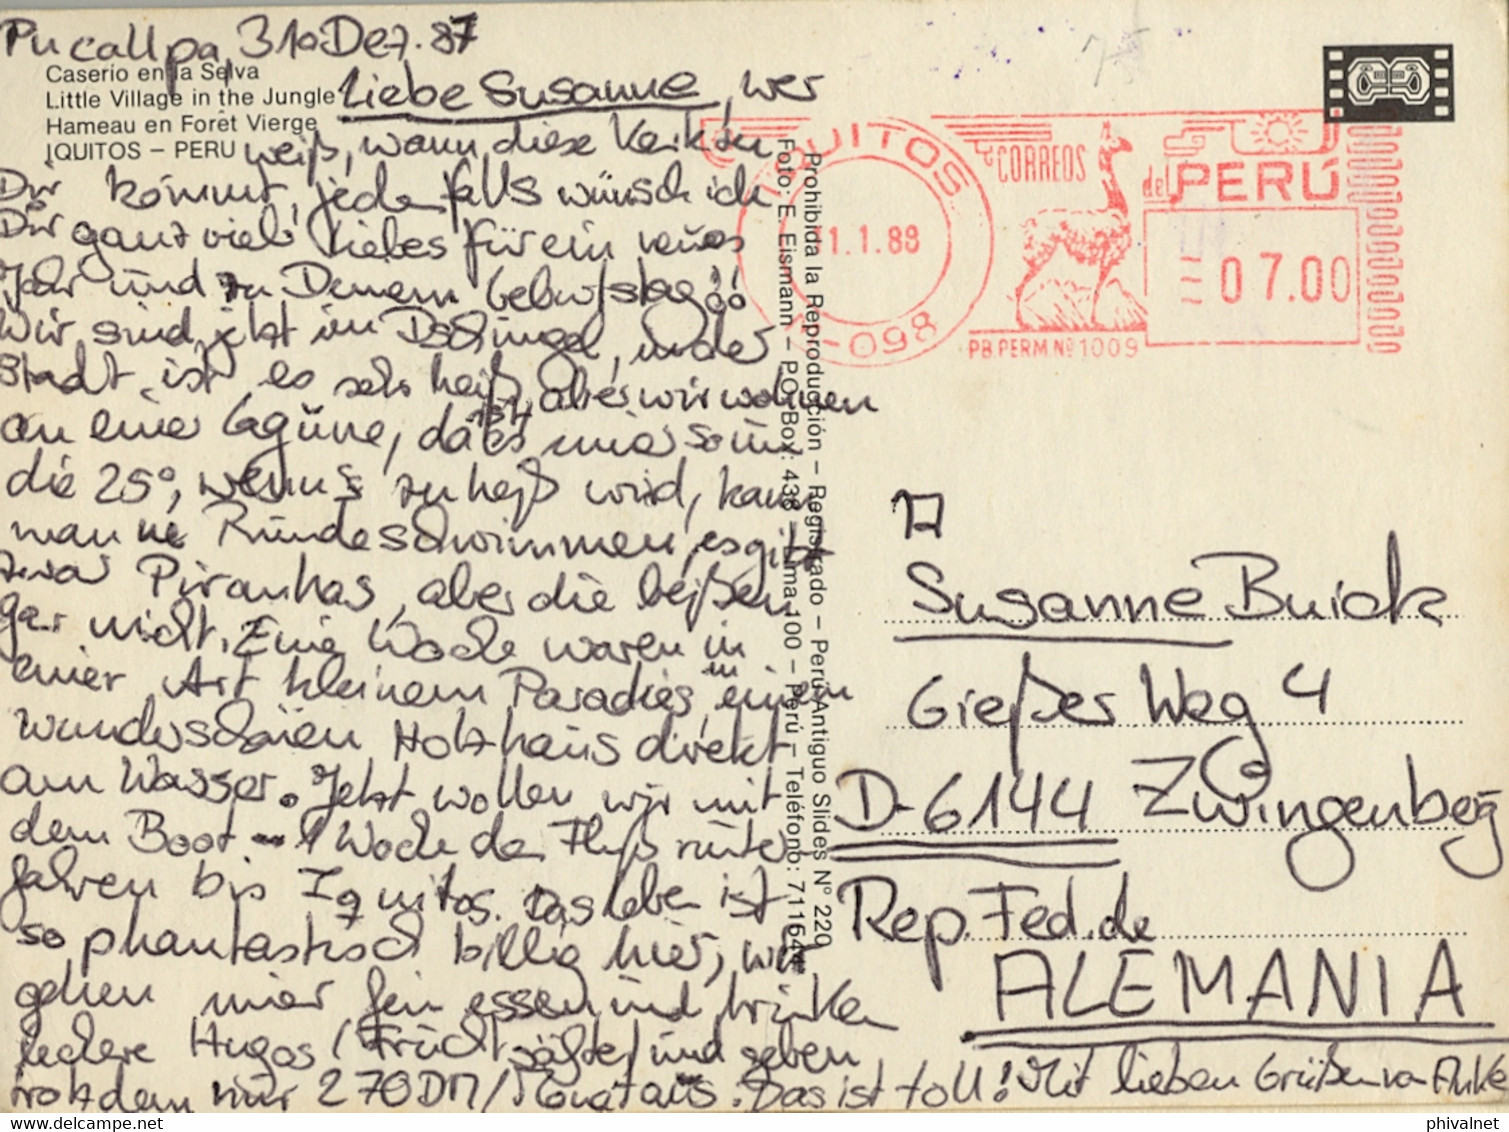 Pucallpa, 31. Dez. 87
Caserio en la Selva
Little Village in the Jungle
Hameau en Forêt Vierge
IQUITOS – PERU
Liebe Susanne, wer
weiß, wann diese Karte zu
Dir kommt, jedenfalls wünsch ich
Dir ganz viel Liebes für ein neues
Jahr und zu Deinem Geburtstag
Wir sind jetzt im Dschungel, in der
Stadt ist es sehr heiß, aber wir wohnen
an einer Lagune, da ist's immer so um
die 25°, wenn's zu heiß wird, kann
man ne Runde schwimmen, es gibt
zwar Piranhas, aber die beißen
gar nicht. Eine Woche waren in
einer Art kleinem Paradies, in einem
wunderschönen Holzhaus direkt
am Wasser. Jetzt wollen wir mit
dem Boot 1 Woche den Fluß runter
fahren bis Iquitos. Das Leben ist
so phantastisch billig hier, wir
gehen immer fein essen und trinken
leckere Hugos (Fruchtsäfte) und geben
trotzdem nur 270DM/Monat aus. Das ist toll! Mit lieben Grüßen von Anke
Prohibida la Reproducción – Registrado – Perú Antiguo Slides N° 220
Foto: E. Eismann – P.O. Box: 438 – Lima 100 – Perú – Teléfono: 711644
IQUITOS
11.1.88
098
CORREOS del PERÚ
07.00
PB.PERM.Nº1009
A
Susanne Buick
Gießer Weg 4
D-6144 Zwingenberg
Rep. Fed. de
ALEMANIA
phivalnet.com www.delcampe.net
phivalnet